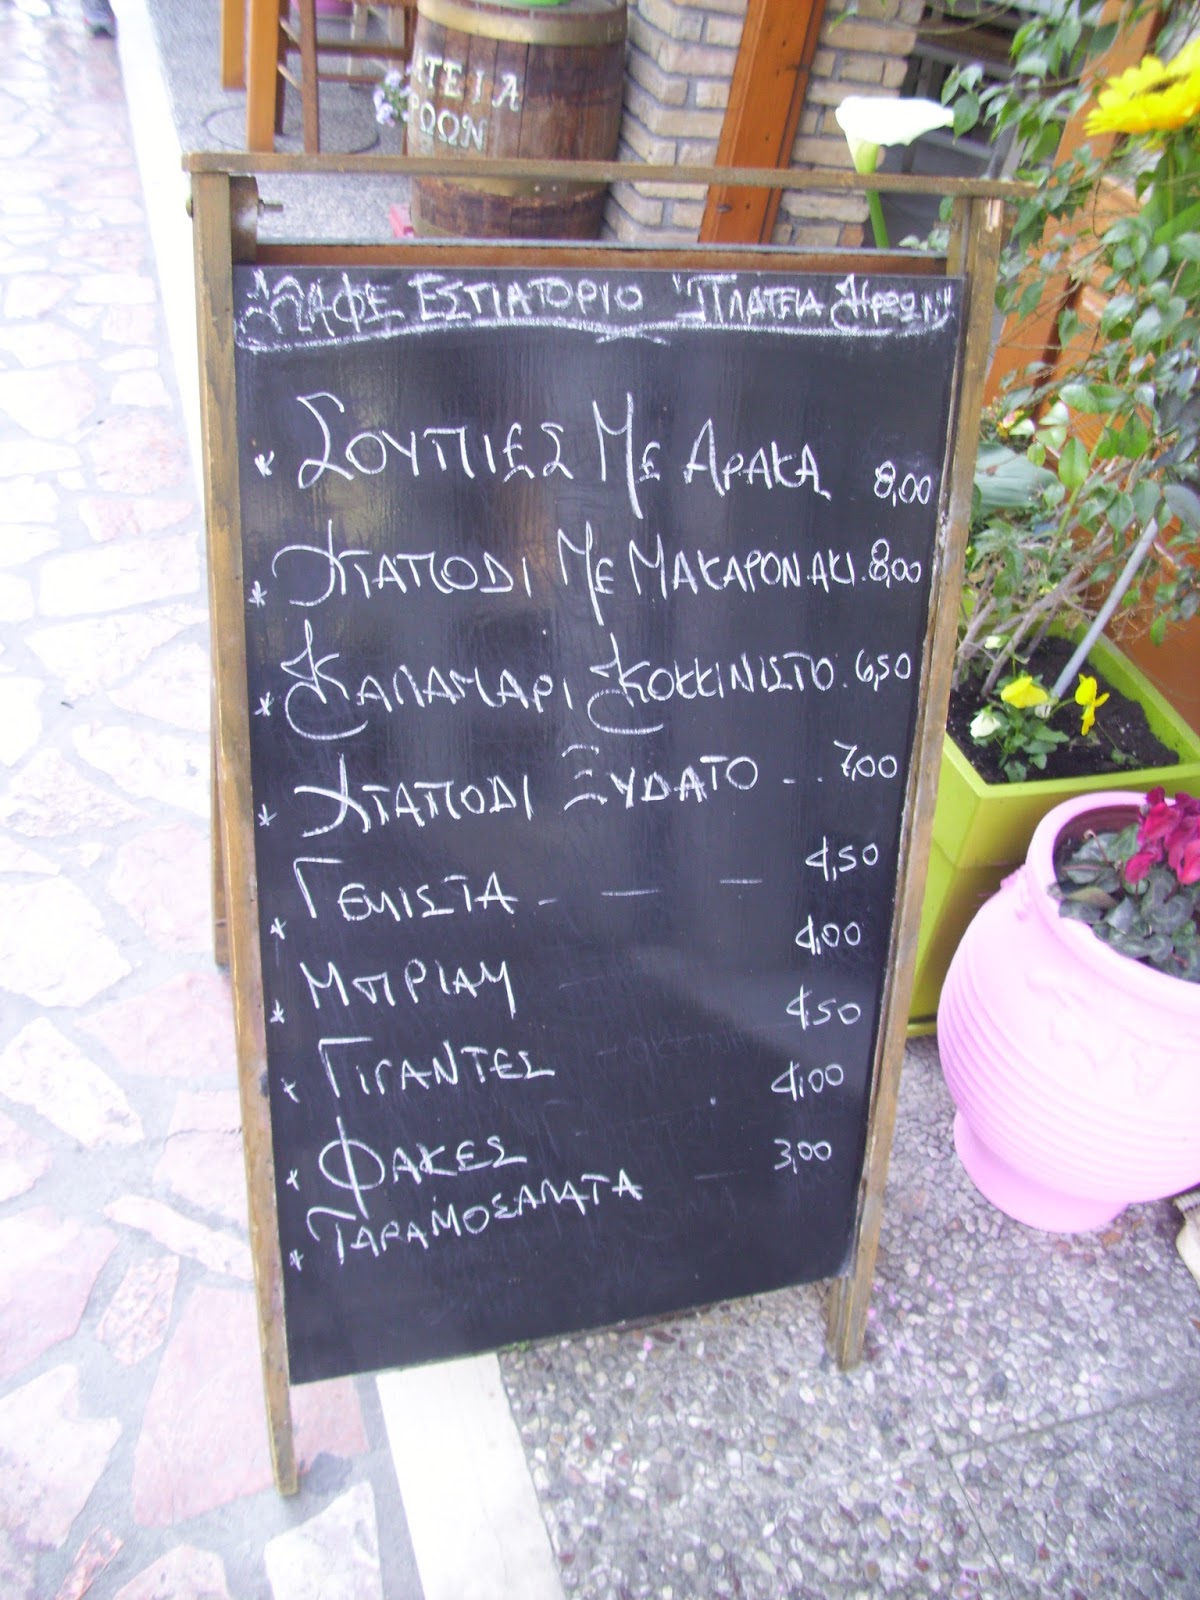 ΤΕΙΑ
ΡΩΩΝ
ΚΑΦΕ ΕΣΤΙΑΤΟΡΙΟ "ΠΛΑΤΕΙΑ ΗΡΩΩΝ"
* ΣΟΥΠΙΕΣ ΜΕ ΑΡΑΚΑ 8,00
* ΧΤΑΠΟΔΙ ΜΕ ΜΑΚΑΡΟΝΑΚΙ. 8,00
* ΚΑΛΑΜΑΡΙ ΚΟΚΚΙΝΙΣΤΟ. 6,50
* ΧΤΑΠΟΔΙ ΞΥΔΑΤΟ - .. 7,00
* ΓΕΜΙΣΤΑ - — — 4,50
* ΜΠΡΙΑΜ 4,00
* ΓΙΓΑΝΤΕΣ 4,50
* ΦΑΚΕΣ 4,00
* ΤΑΡΑΜΟΣΑΛΑΤΑ — 3,00